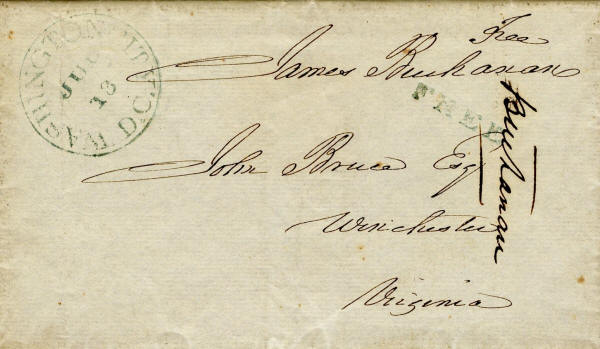 Free
James Buchanan
WASHINGTON CITY D.C.
JUL
18
FREE
Buchanan
John Bruce Esq
Winchester
Virginia